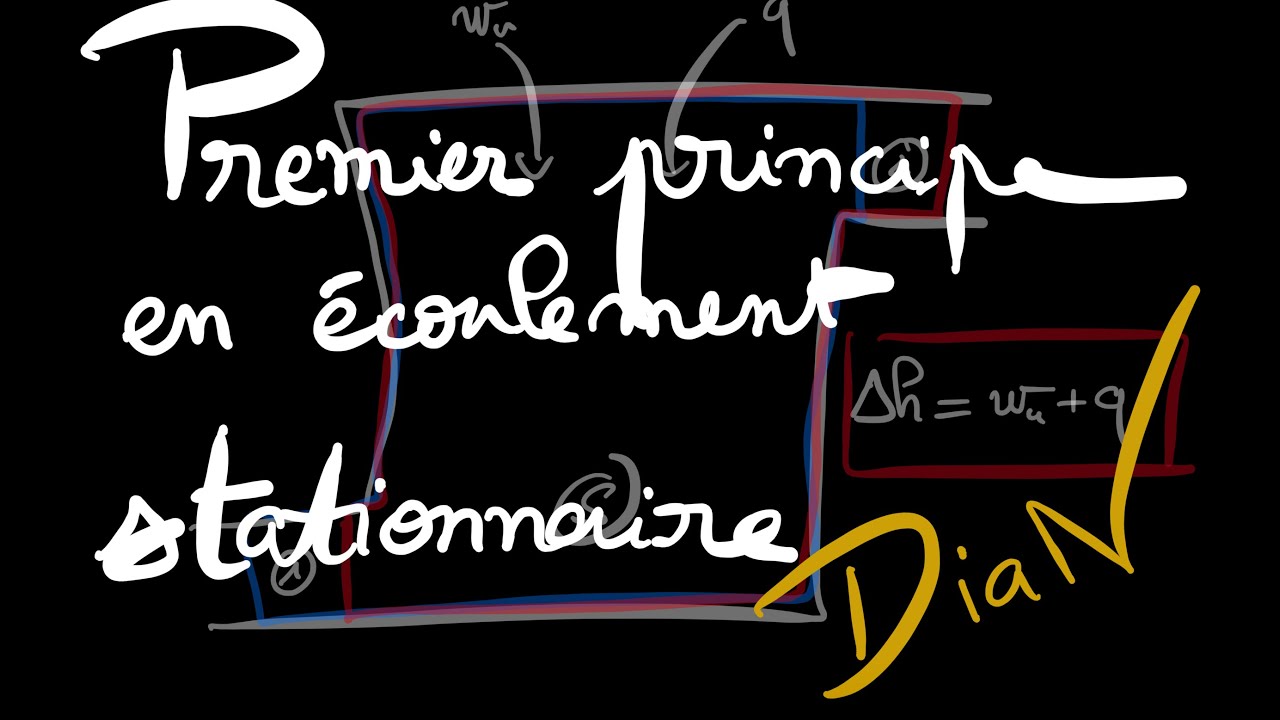 wᵤ q
Premier principe
en écoulement
Δh = wᵤ + q
stationnaire
DiaN